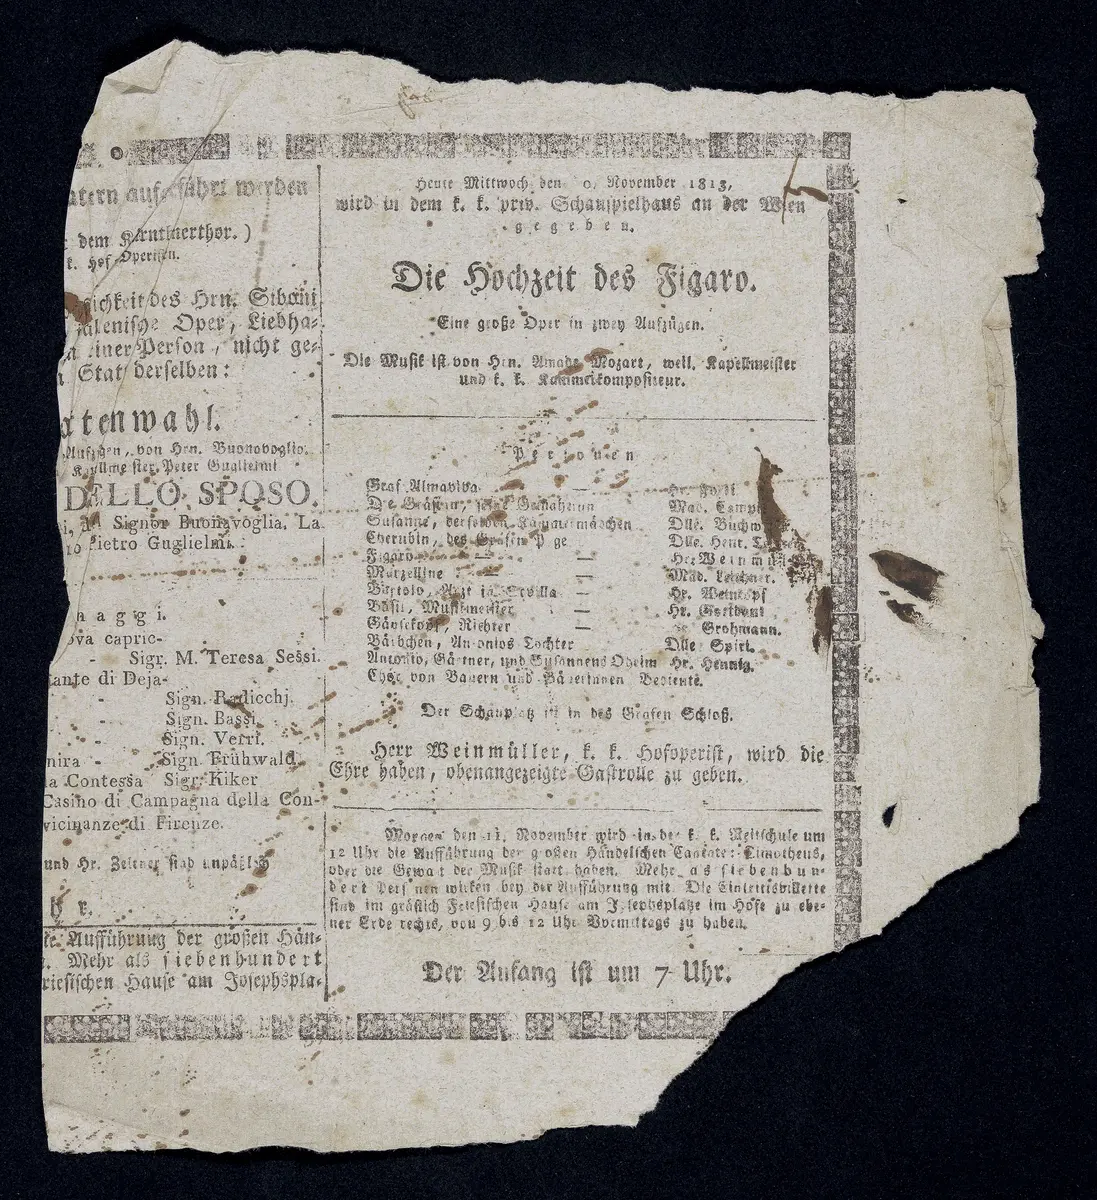 aufgeführt werden
dem Kärntnerthor.)
k. Hof-Operisten.
lichkeit des Hrn. Siboni
italienische Oper, Liebha-
einer Person, nicht ge-
Stat derselben:
atenwahl.
Aufzügen, von Hrn. Buonavoglia.
Kapellmeister Peter Guglielmi
DELLO SPOSO.
Signor Buonavoglia. La
Pietro Guglielmi.
aggi.
ova capric-
- Sigr. M. Teresa Sessi.
tante di Deja-
- Sign. Radicchj.
- Sign. Bassi.
- Sign. Verri.
nira - Sign. Frühwald.
la Contessa Sigr. Kiker
Casino di Campagna della Con-
vicinanze di Firenze.
und Hr. Zeltner sind unpäßlich
hr.
te Aufführung der großen Hän-
Mehr als siebenhundert
riesischen Hause am Josephspla-
Heute Mittwoch den 10. November 1813,
wird in dem k. k. priv. Schauspielhaus an der Wien
gegeben.
Die Hochzeit des Figaro.
Eine große Oper in zwey Aufzügen.
Die Musik ist von Hrn. Amade Mozart, weil. Kapellmeister
und k. k. Kammerkompositeur.
Personen
Graf Almaviva — Hr.
Die Gräfin, seine Gemahlinn — Mad. Campi
Susanne, derselben Kammermädchen Dlle. Buchw
Cherubin, des Grafen Page — Dlle. Hent.
Figaro — Hr. Weinmüller
Marzelline — Mad. Leichner.
Bartolo, Arzt in Sevilla — Hr. Weinkopf
Basil, Musikmeister — Hr. Gottdank
Gänsekopf, Richter — Grohmann.
Bärbchen, Antonios Tochter — Dlle. Spiri.
Antonio, Gärtner, und Susannens Oheim Hr. Hennig.
Chor von Bauern und Bäuerinnen Bediente.
Der Schauplatz ist in des Grafen Schloß.
Herr Weinmüller, k. k. Hofoperist, wird die
Ehre haben, obenangezeigte Gastrolle zu geben.
Morgen den 11. November wird in der k. k. Reitschule um
12 Uhr die Aufführung der großen Händelschen Cantate: Timotheus,
oder die Gewalt der Musik statt haben. Mehr als siebenhun-
dert Personen wirken bey der Aufführung mit. Die Eintrittsbillette
sind im gräflich Friesischen Hause am Josephsplatze im Hofe zu ebe-
ner Erde rechts, von 9 bis 12 Uhr Vormittags zu haben.
Der Anfang ist um 7 Uhr.